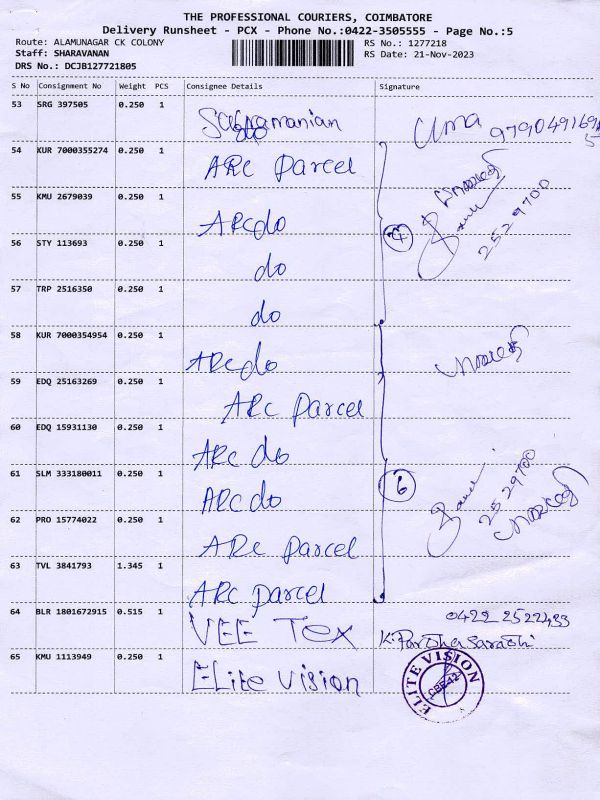 THE PROFESSIONAL COURIERS, COIMBATORE
Delivery Runsheet - PCX - Phone No.:0422-3505555 - Page No.:5
Route: ALAMUNAGAR CK COLONY RS No.: 1277218
Staff: SHARAVANAN RS Date: 21-Nov-2023
DRS No.: DCJB127721805
S No Consignment No Weight PCS Consignee Details Signature
53 SRG 397505 0.250 1 Subramanian Uma
54 KUR 7000355274 0.250 1 ARC Parcel
55 KMU 2679039 0.250 1 ARC do 2529700
56 STY 113693 0.250 1 do
57 TRP 2516350 0.250 1 do
58 KUR 7000354954 0.250 1 ARC do
59 EDQ 25163269 0.250 1 ARC Parcel
60 EDQ 15931130 0.250 1 ARC do
61 SLM 333180011 0.250 1 ARC do 6 2529700
62 PRO 15774022 0.250 1 ARC Parcel
63 TVL 3841793 1.345 1 ARC Parcel
64 BLR 1801672915 0.515 1 VEE Tex 0422 2522433
K. Partha Sarathi
65 KMU 1113949 0.250 1 Elite Vision
ELITE VISION
CBE-12